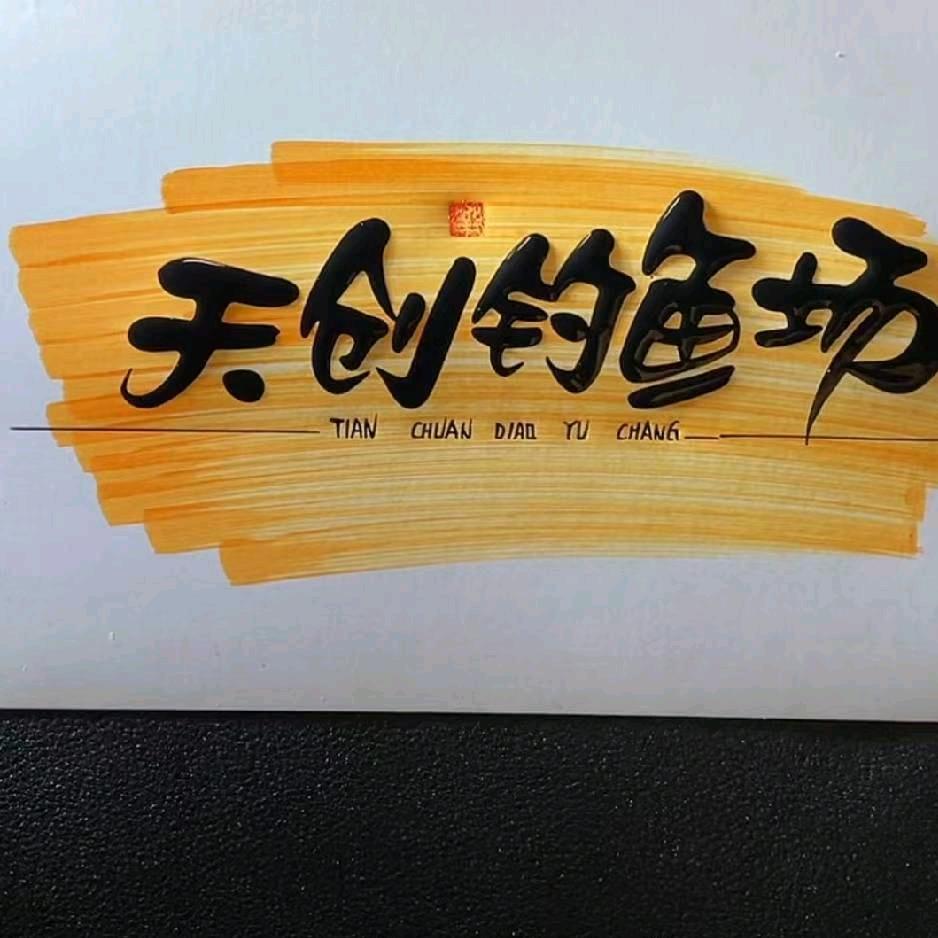 天创钓鱼场
TIAN CHUAN DIAO YU CHANG